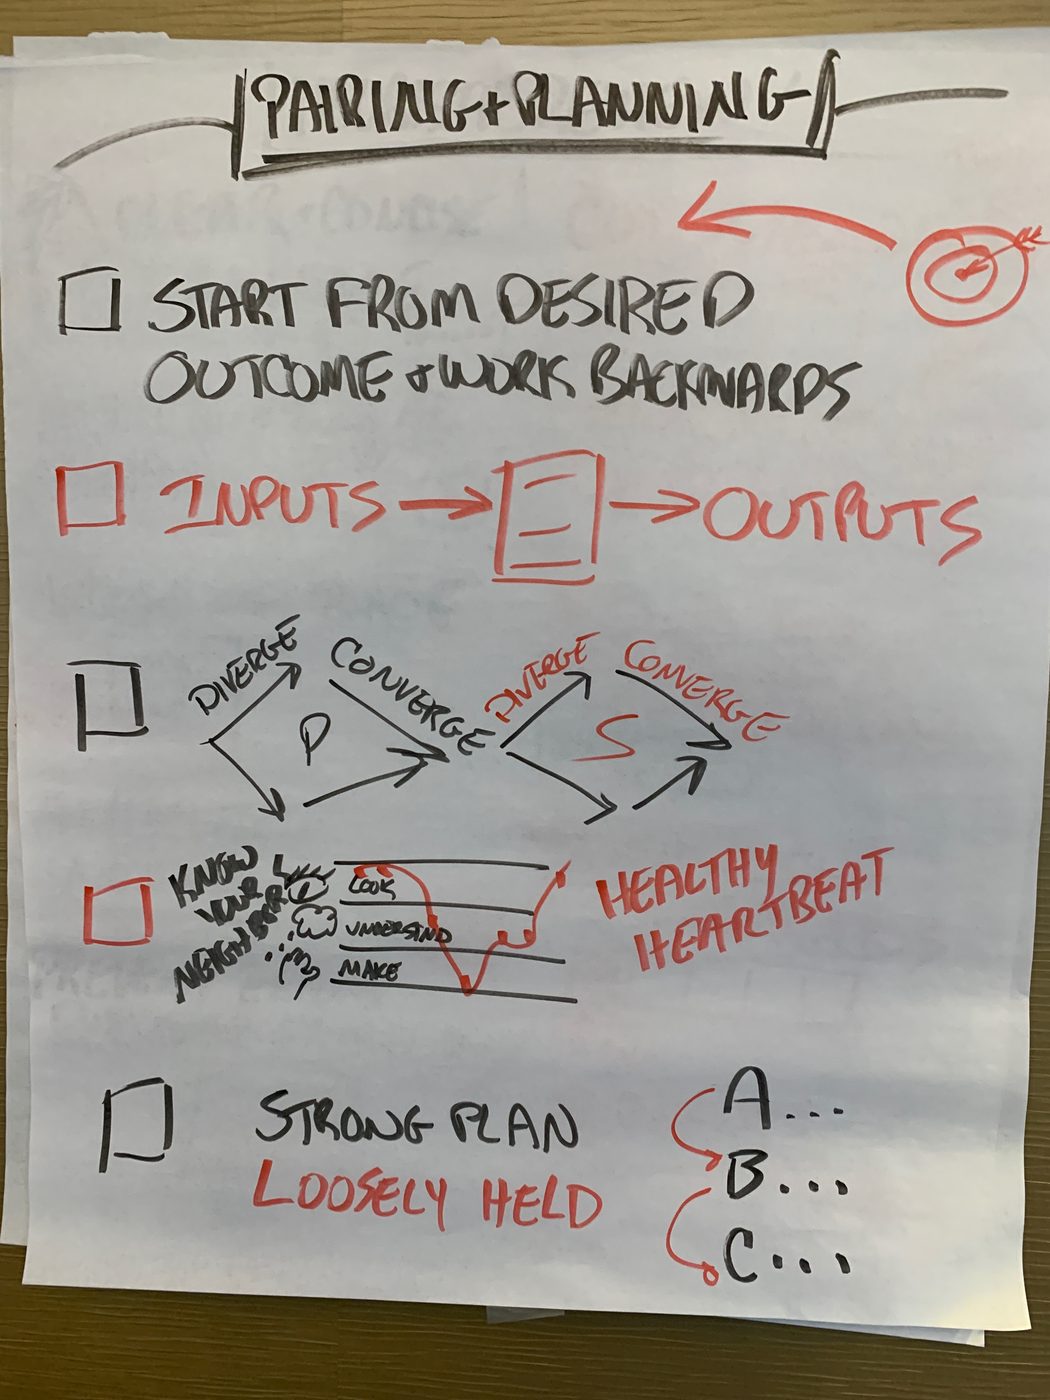 PAIRING + PLANNING
START FROM DESIRED
OUTCOME + WORK BACKWARDS
INPUTS → → OUTPUTS
DIVERGE CONVERGE DIVERGE CONVERGE
P S
KNOW
YOUR
NEIGHBOR
LOOK
UNDERSTND
MAKE
HEALTHY
HEARTBEAT
STRONG PLAN
LOOSELY HELD
A...
B...
C...